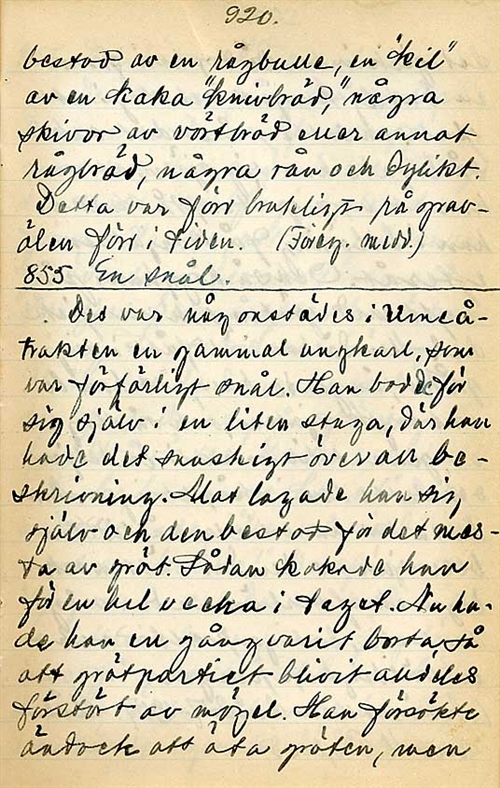 920.
bestod av en rågbulle, en "kil"
av en kaka "knivbröd," några
skivor av vörtbröd eller annat
rågbröd, några rån och dylikt.
Detta var förr brukligt på grav-
ölen förr i tiden. (Föreg. medd.)
855 En snål.
Det var någonstädes i Umeå-
trakten en gammal ungkarl, som
var förfärligt snål. Han bodde för
sig själv i en liten stuga, där han
hade det snuskigt över all be-
skrivning. Mat lagade han sig
själv och den bestod för det mes-
ta av gröt. Sådan kokade han
för en hel vecka i taget. Nu ha-
de han en gång varit borta, så
att grötpartiet blivit alldeles
förstört av mögel. Han försökte
ändock att äta gröten, men